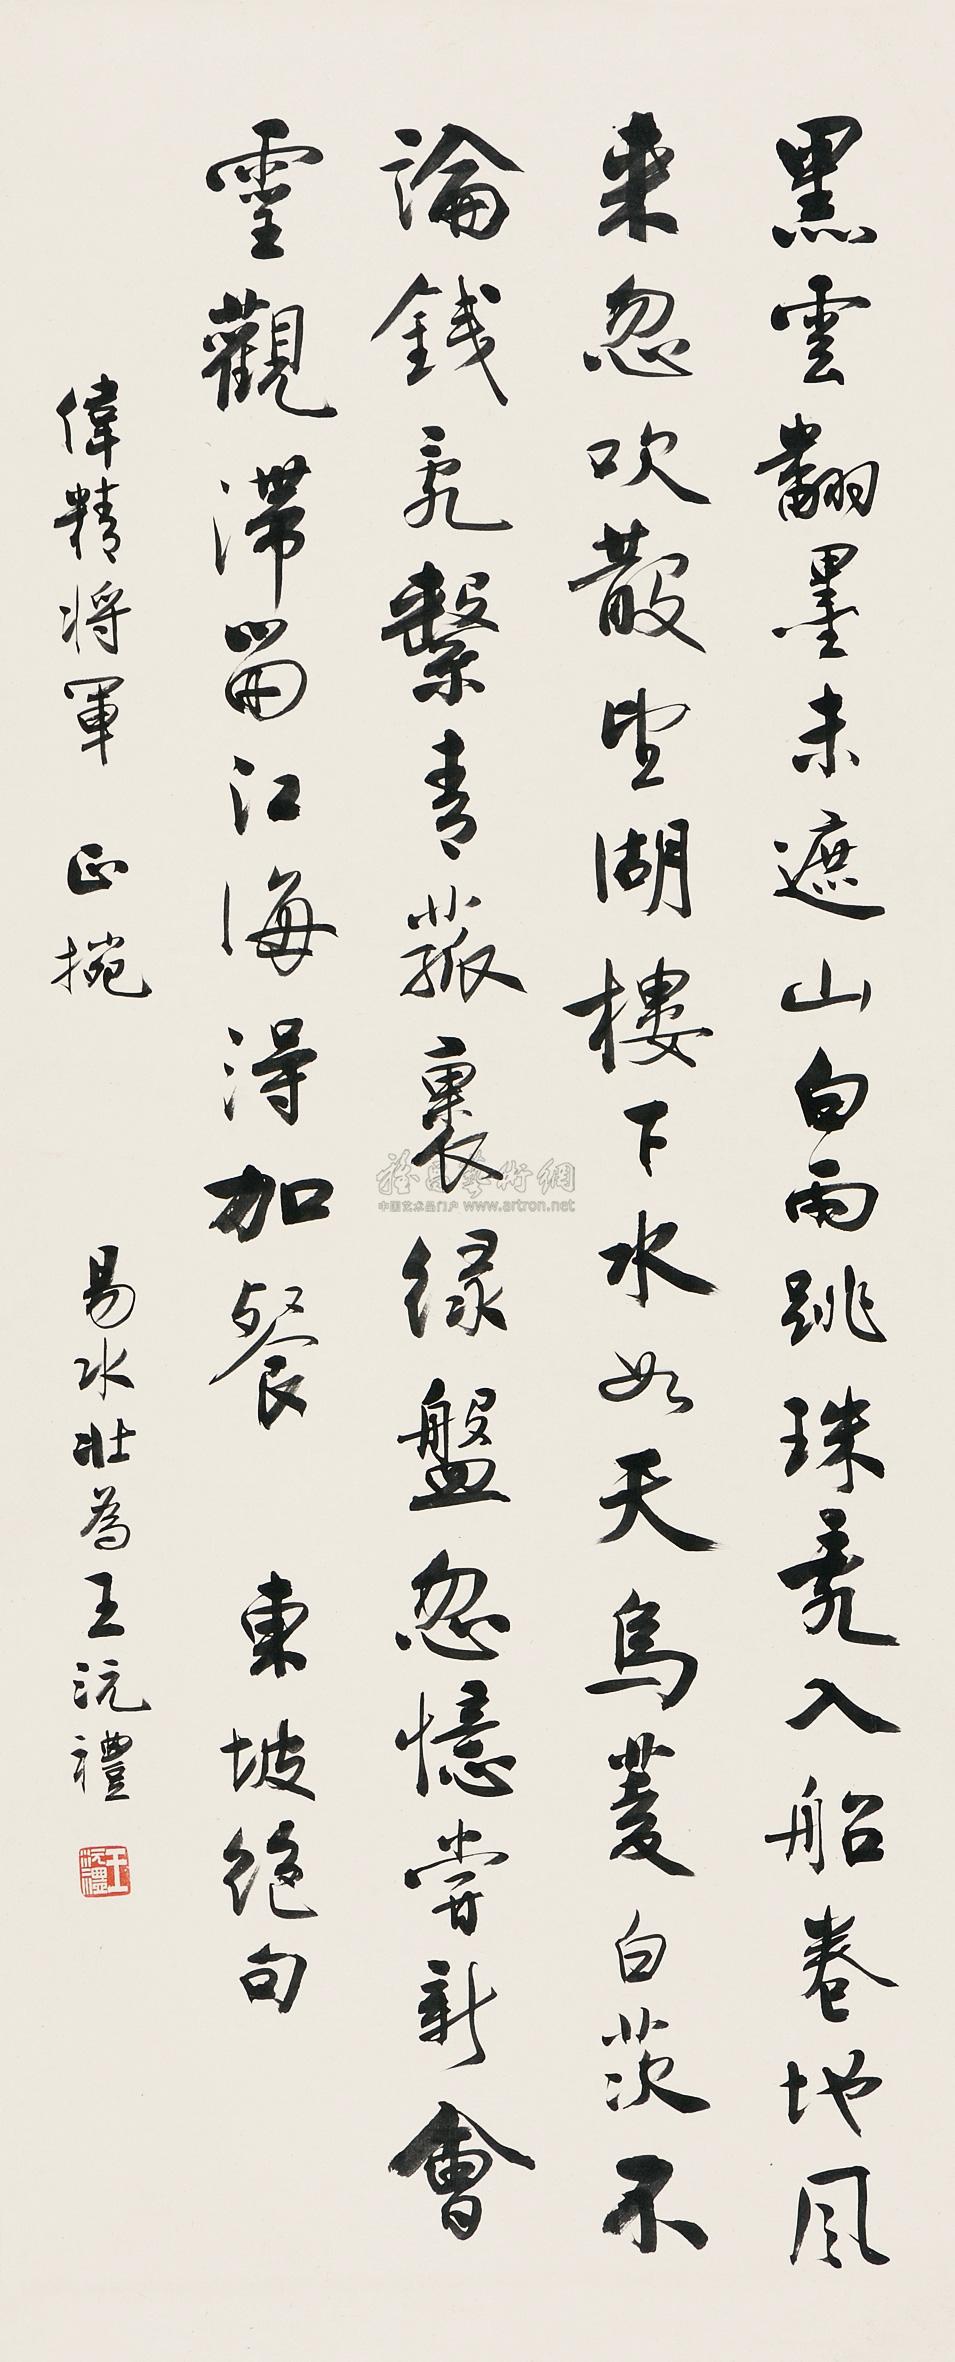 黑雲翻墨未遮山白雨跳珠亂入船卷地風
來忽吹散望湖樓下水如天烏菱白茨不
論錢亂繫青菰裹綠盤忽憶嘗新會
靈觀滯留江海得加餐 東坡絕句
偉精將軍 正捥
易水壯為王沅禮
王沅禮
雅昌藝術網
中国艺术品门户 www.artron.net